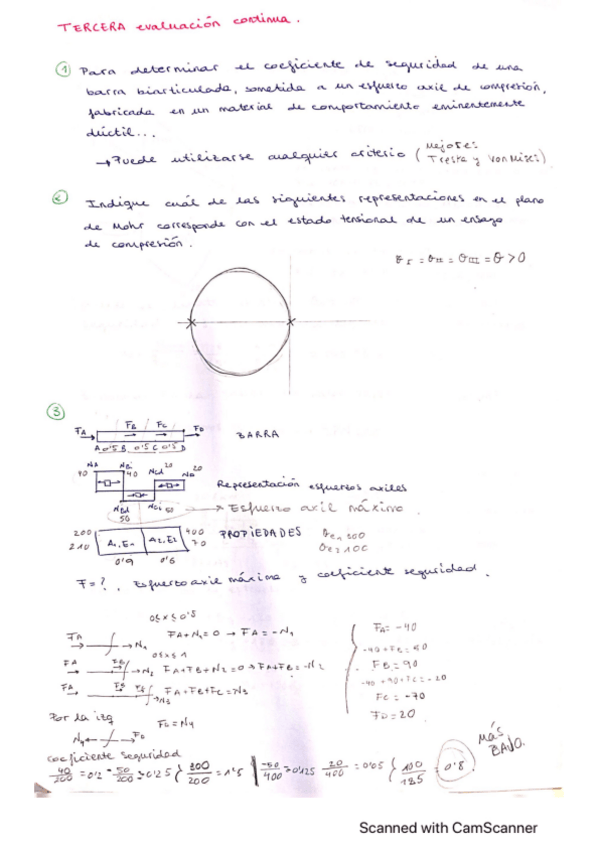 TERCERA evaluación continua.
① Para determinar el coeficiente de seguridad de una
barra biarticulada, sometida a un esfuerzo axil de compresión,
fabricada en un material de comportamiento eminentemente
dúctil...
→ Puede utilizarse cualquier criterio (Mejores:
Treska y Von Mises)
② Indique cuál de las siguientes representaciones en el plano
de Mohr corresponde con el estado tensional de un ensayo
de compresión.
σI = σII = σIII = σ > 0
③
FA FB FC FD
A 0'5 B 0'5 C 0'5 D
BARRA
NA NBi NCd 20 ND 20
40 40
Representación esfuerzos axiles
NBd NCi 50 → Esfuerzo axil máximo
50
200 A1, E1 A2, E2 400 PROPIEDADES
210 70
0'9 0'6
F = ?, Esfuerzo axil máxima y coeficiente seguridad.
0≤x≤0'5
FA → N1 FA+N1=0 → FA=-N1
0≤x≤1
FA FB N2 FA+FB+N2=0 → FA+FB=-N2
FA FB FC N3 FA+FB+FC=N3
Por la izq FD=N4
N4 FD
FA=-40
-40+FB=50
FB=90
-40+90+FC=-20
FC=-70
FD=20
coeficiente seguridad
40/200 = 0'2 50/200 = 0'25 300/200 = 1'5 -50/400 = 0'125 20/400 = 0'05 100/125 = 0'8
MÁS
BAJO.
Scanned with CamScanner